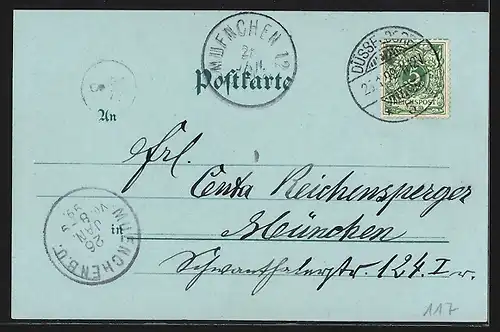 MUENCHEN 12
26
JAN.
DÜSSELDORF
5
REICHSPOST
Postkarte
An
Frl.
Centa Reichensperger
in München
Schwanthalerstr. 124. I r.
MUENCHEN B.O.
26
JAN
8
99
117